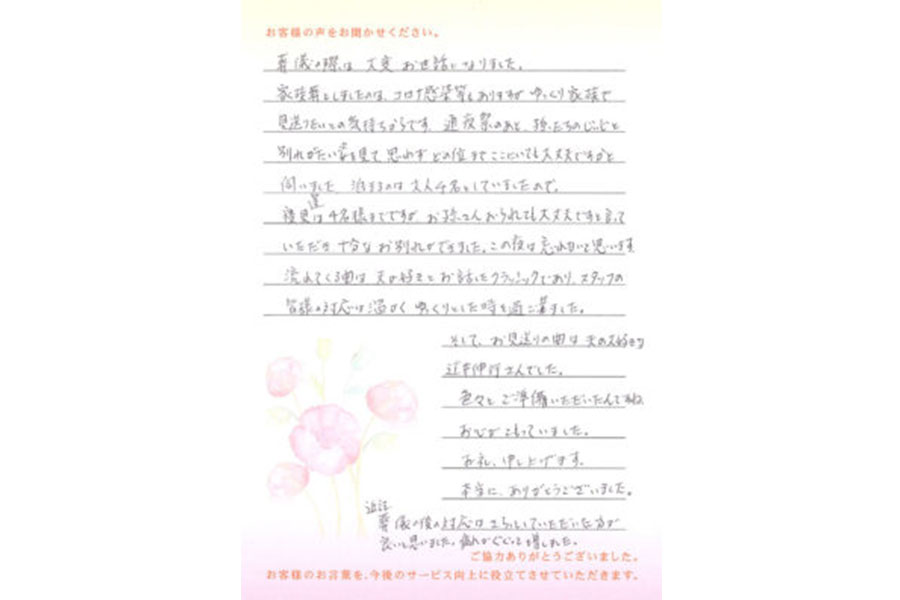 お客様の声をお聞かせください。
葬儀の際は 大変 お世話になりました。
家族葬としましたのは、コロナ感染等もありますが ゆっくり家族で
見送りたいとの気持ちからです。通夜祭のあと、孫たちのじぃじと
別れがたい姿を見て 思わず どの位まで ここにいても大丈夫ですかと
伺いました。泊まるのは 大人4名としていましたので、
寝具は4名様までですが お孫さんおられても大丈夫ですと言って
いただき 十分な お別れができました。この夜は 忘れないと思います。
流れてくる曲は 夫が好きと お話したクラッシックであり、スタッフの
皆様の対応は温かく ゆっくりとした時を過ごせました。
そして、お見送りの曲は 夫の大好きな
さんでした。
色々と ご準備いただいたんですね
お心が こもっていました。
お礼、申し上げます。
本当に、ありがとうございました。
追記
葬儀の後の対応は さらっとしていただいた方が
良いと思いました。疲れがぐぐっと増しました。
ご協力ありがとうございました。
お客様のお言葉を、今後のサービス向上に役立てさせていただきます。